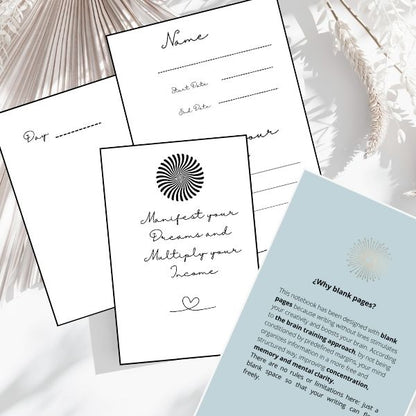 Name
Start Date
End Date
your
Day
Manifest your
Dreams and
Multiply your
Income
¿Why blank pages?
This notebook has been designed with blank
pages because writing without lines stimulates
your creativity and boosts your brain. According
to the brain training approach, by not being
conditioned by predefined margins, your mind
organizes information in a more free and
structured way, improving concentration,
memory and mental clarity.
There are no rules or limitations here: just a
blank space so that your writing can
freely.